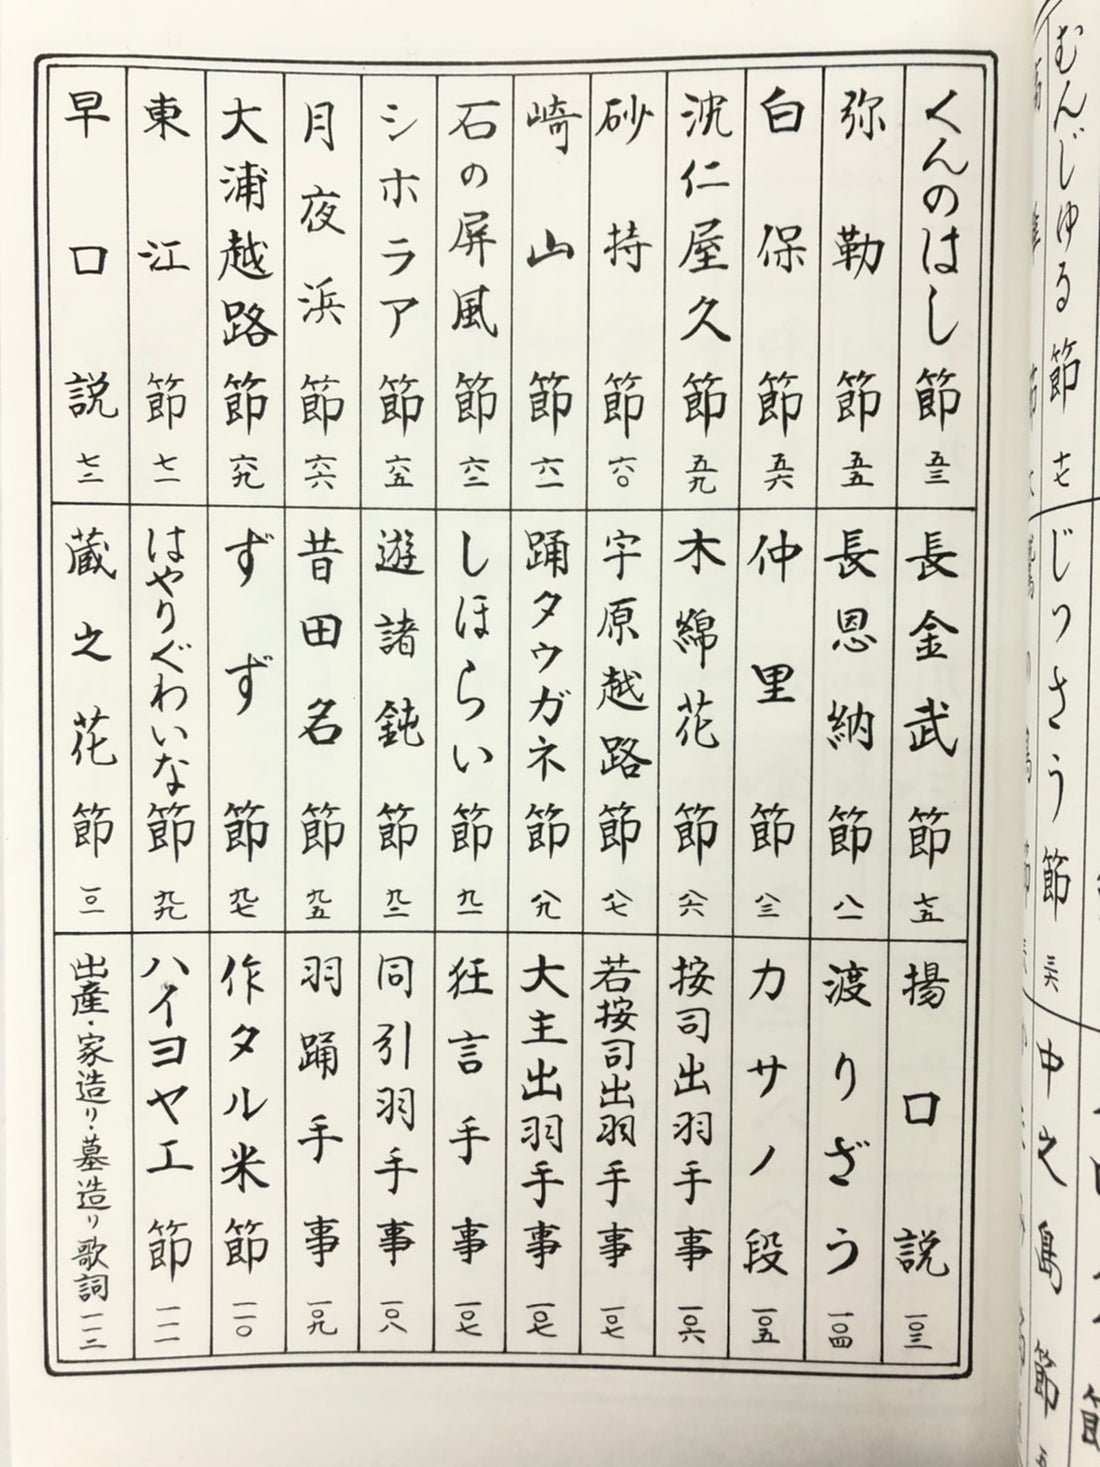 くんのはし節 五三
弥勒節 五五
白保節 五六
沈仁屋久節 五九
砂持節 六〇
崎山節 六一
石の屏風節 六三
シホラア節 六五
月夜浜節 六六
大浦越路節 六九
東江節 七一
早口説 七二
長金武節 七五
長恩納節 八一
仲里節 八三
木綿花節 八六
宇原越路節 八七
踊タウガネ節 八九
しほらい節 九一
遊諸鈍節 九二
昔田名節 九五
ずず節 九七
はやりぐわいな節 九九
蔵之花節 一〇一
揚口説 一〇三
渡りざう 一〇四
カサノ段 一〇五
按司出羽手事 一〇六
若按司出羽手事 一〇七
大主出羽手事 一〇七
狂言手事 一〇七
同引羽手事 一〇八
羽踊手事 一〇九
作タル米節 一一〇
ハイヨヤエ節 一一一
出産・家造り・墓造り歌詞 一一三
むんじゅる節 一七
じっさう節 三六
中之島節